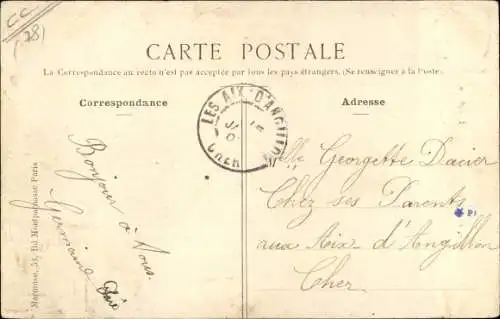 CC
(78)
CARTE POSTALE
La Correspondance au recto n'est pas acceptée par tous les pays étrangers. (Se renseigner à la Poste)
Correspondance
Adresse
LES AIX-D'ANGILLON
CHER
Bonjour à Vous.
Germaine
Elle Georgette Dacier
Chez ses Parents
aux Aix-d'Angillon
Cher
Paris